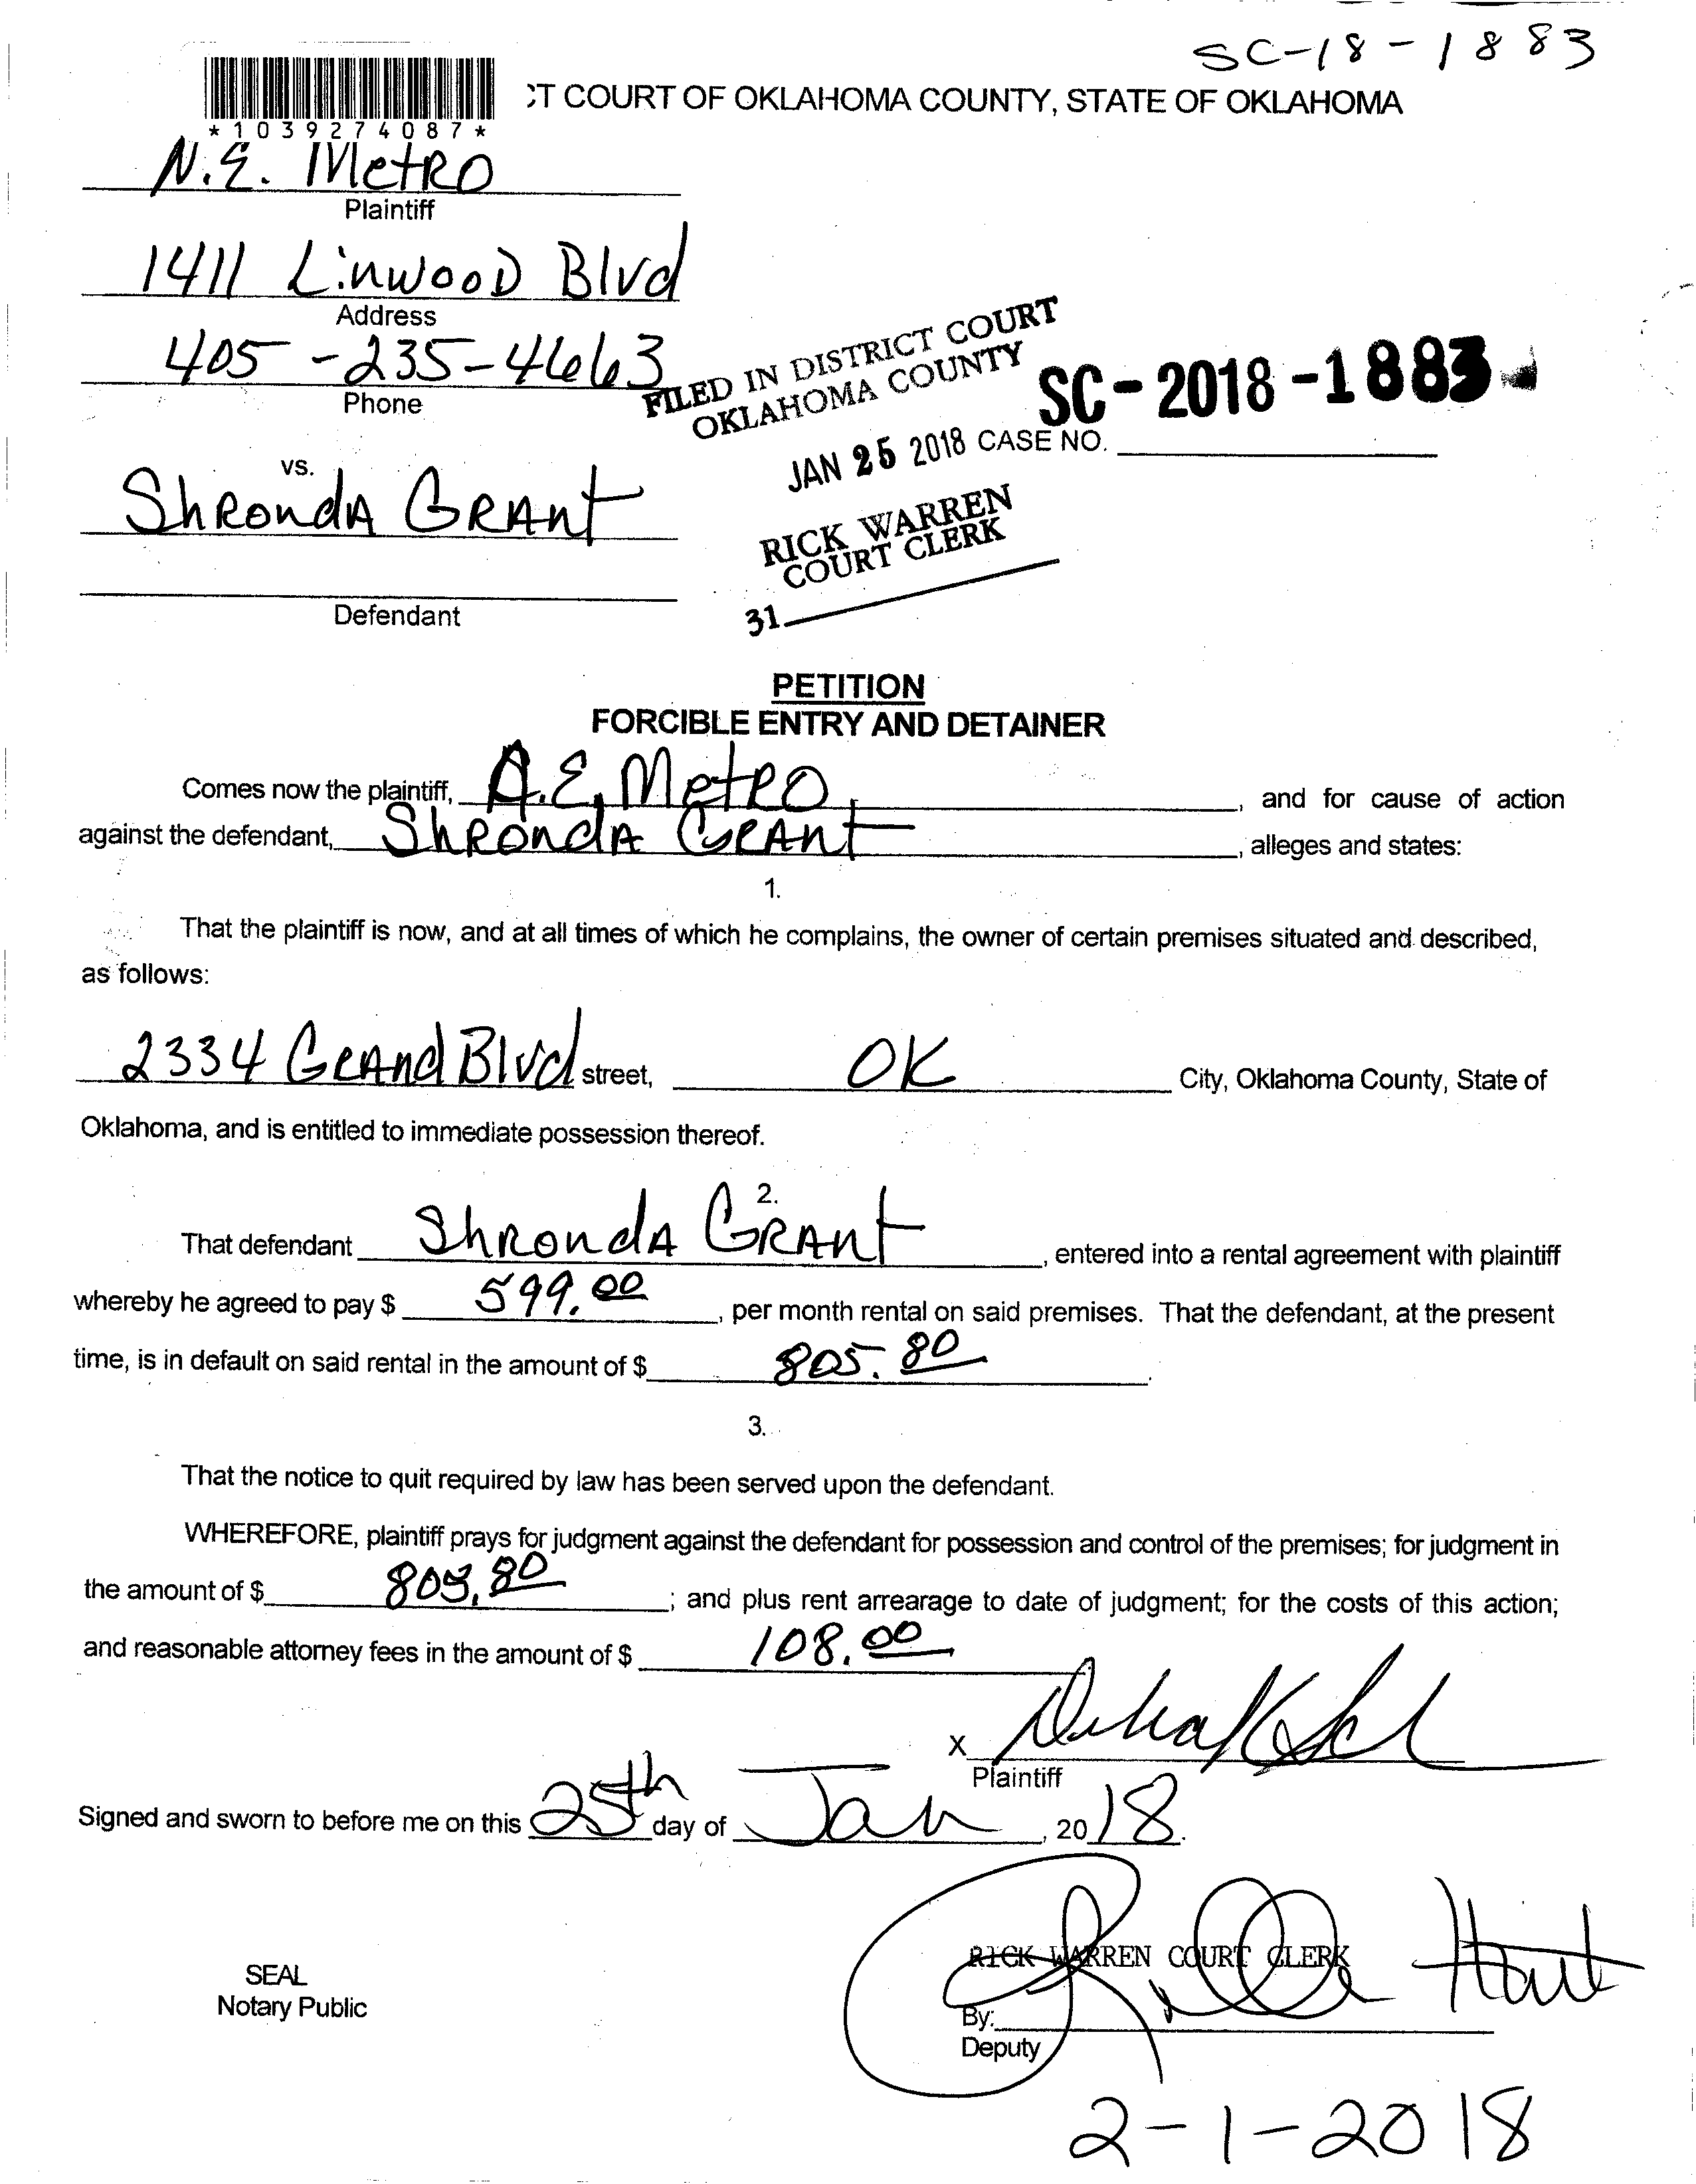 SC-18-1883
CT COURT OF OKLAHOMA COUNTY, STATE OF OKLAHOMA
*1039274087*
N.E. Metro
Plaintiff
1411 Linwood Blvd
Address
405-235-4663
Phone
FILED IN DISTRICT COURT
OKLAHOMA COUNTY
SC-2018-1883
JAN 25 2018
CASE NO.
vs.
ShRondA GRAnt
RICK WARREN
COURT CLERK
31
Defendant
PETITION
FORCIBLE ENTRY AND DETAINER
Comes now the plaintiff, A.E. Metro, and for cause of action
against the defendant, ShRondA GRAnt, alleges and states:
1.
That the plaintiff is now, and at all times of which he complains, the owner of certain premises situated and described,
as follows:
2334 GRAnd Blvd street, OK City, Oklahoma County, State of
Oklahoma, and is entitled to immediate possession thereof.
2.
That defendant ShRondA GRAnt, entered into a rental agreement with plaintiff
whereby he agreed to pay $ 599.00, per month rental on said premises. That the defendant, at the present
time, is in default on said rental in the amount of $ 805.80.
3.
That the notice to quit required by law has been served upon the defendant.
WHEREFORE, plaintiff prays for judgment against the defendant for possession and control of the premises; for judgment in
the amount of $ 805.80; and plus rent arrearage to date of judgment; for the costs of this action;
and reasonable attorney fees in the amount of $ 108.00
X
Plaintiff
Signed and sworn to before me on this 25th day of Jan, 2018.
RICK WARREN COURT CLERK
SEAL
Notary Public
By:
Deputy
2-1-2018